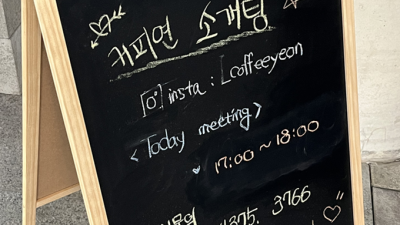 커피연 소개팅
insta : coffeeyeon
< Today meeting >
17:00 ~ 18:00
1375. 3766